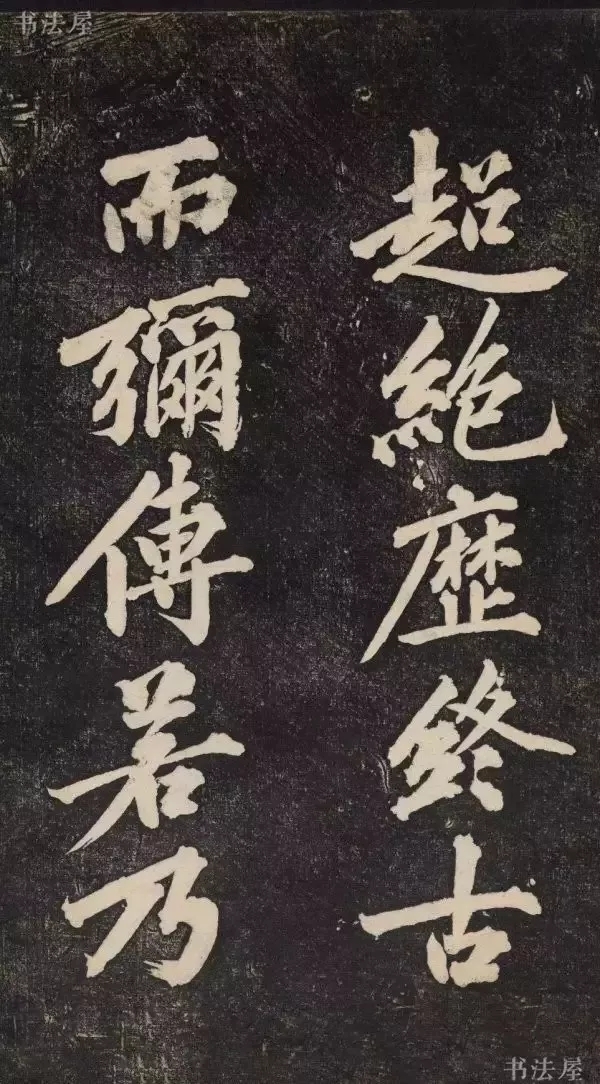 书法屋
超絶歴終古
而彌傳若乃
书法屋